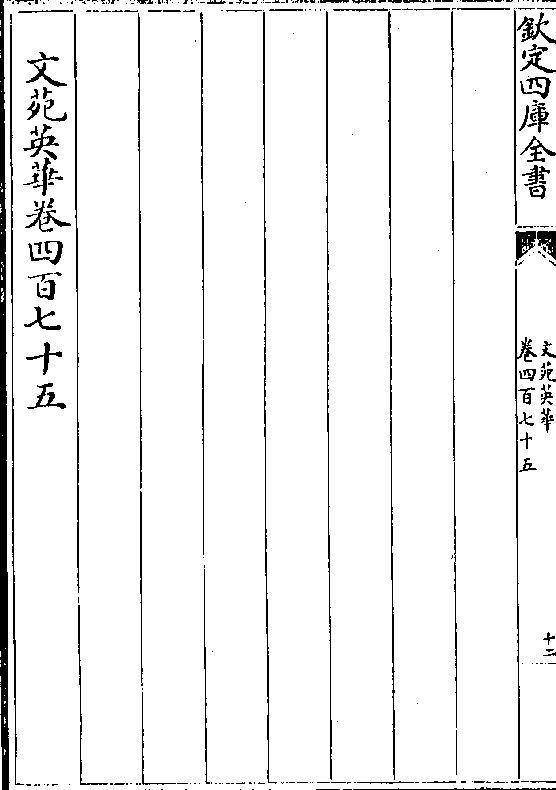 欽定四庫全書
文苑英華
卷四百七十五
十二
文苑英華卷四百七十五